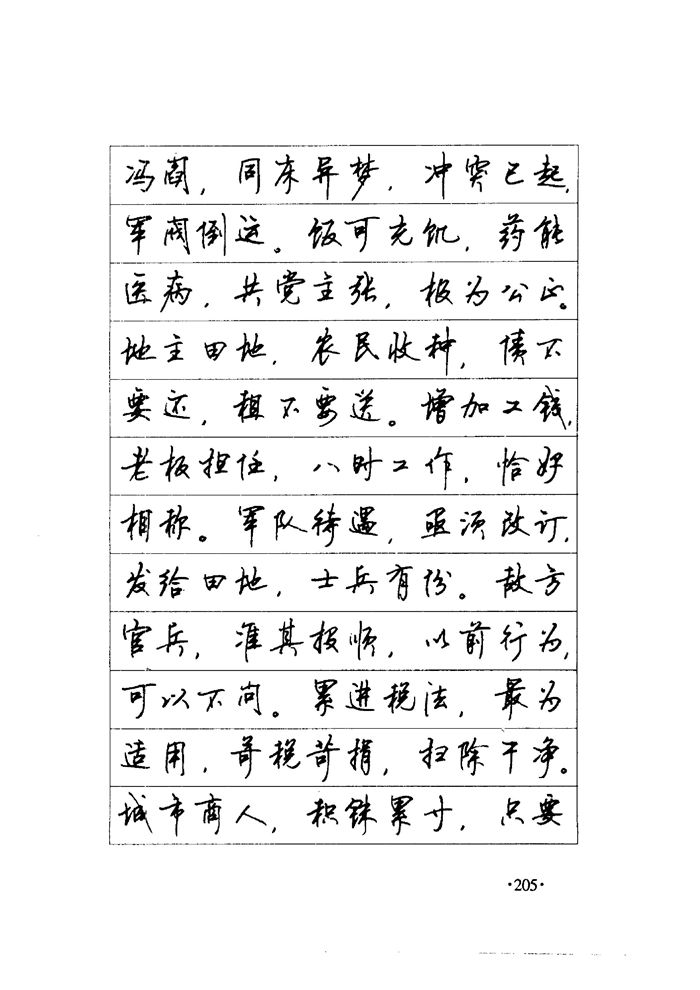 冯阎，同床异梦，冲突已起，
军阀倒运。饭可充饥，药能
医病，共党主张，极为公正。
地主田地，农民收种，债不
要还，租不要送。增加工钱，
老板担任，八时工作，恰好
相称。军队待遇，亟须改订，
发给田地，士兵有份。敌方
官兵，准其投顺，以前行为，
可以不问。累进税法，最为
适用，苛税苛捐，扫除干净。
城市商人，积铢累寸，只要
·205·